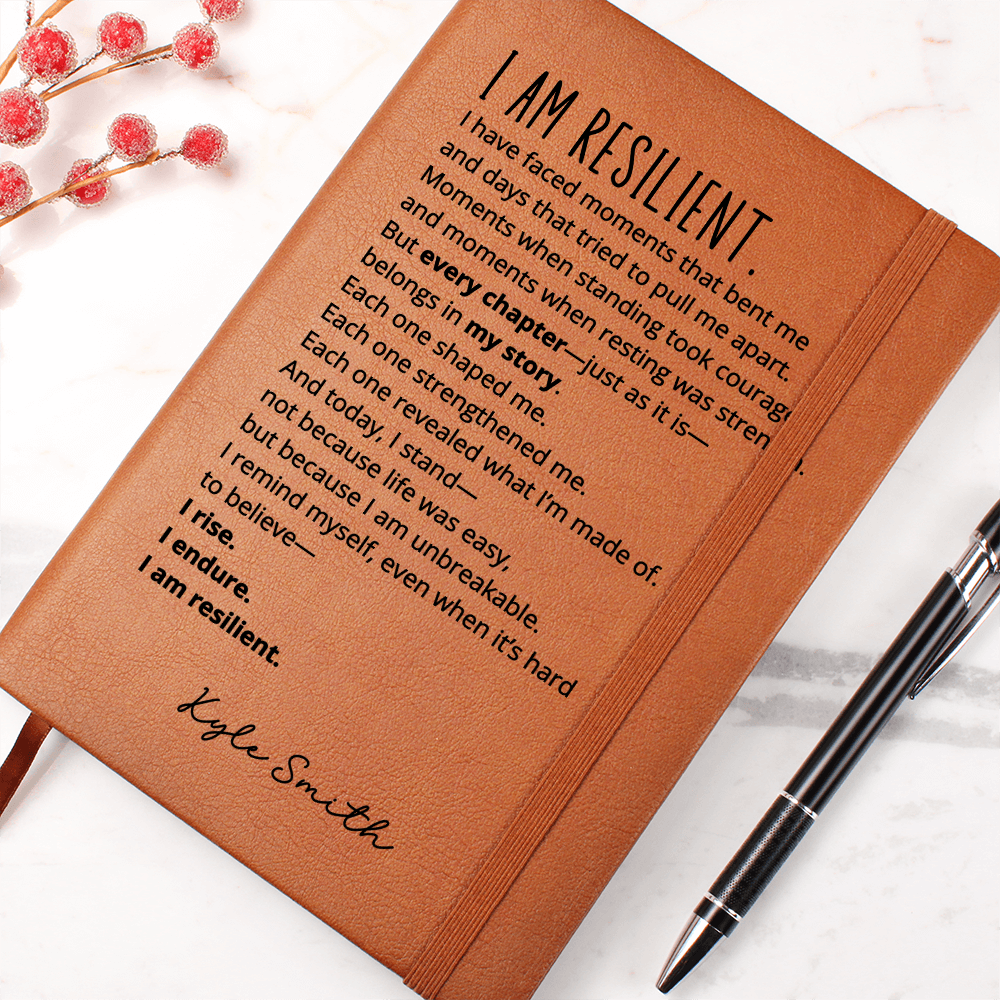 I AM RESILIENT.
I have faced moments that bent me
and days that tried to pull me apart.
Moments when standing took courage
and moments when resting was
But every chapter—just as it is—
belongs in my story.
Each one shaped me.
Each one strengthened me.
Each one revealed what I'm made of.
And today, I stand—
not because life was easy,
but because I am unbreakable.
I remind myself, even when it's hard
to believe—
I rise.
I endure.
I am resilient.
Kyle Smith